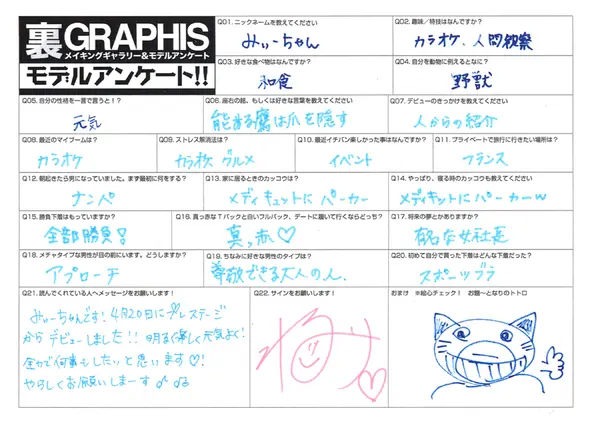 裏GRAPHIS
メイキングギャラリー&モデルアンケート
モデルアンケート!!
Q01. ニックネームを教えてください
みぃーちゃん
Q02. 趣味/特技はなんですか?
カラオケ、人間観察
Q03. 好きな食べ物はなんですか?
和食
Q04. 自分を動物に例えるとなに?
野獣
Q05. 自分の性格を一言で言うと!?
元気
Q06. 座右の銘、もしくは好きな言葉を教えてください
能ある鷹は爪を隠す
Q07. デビューのきっかけを教えてください
人からの紹介
Q08. 最近のマイブーム?
カラオケ
Q09. ストレス解消法は?
カラオケ グルメ
Q10. 最近イチバン楽しかった事はなんですか?
イベント
Q11. プライベートで旅行に行きたい場所は?
フランス
Q12. 朝起きたら男になっていました。まず最初に何をする?
ナンパ
Q13. 家に居るときのカッコウは?
メディキュットにパーカー
Q14. やっぱり、寝る時のカッコウも教えてください
メディキットにパーカーw
Q15. 勝負下着はもっていますか?
全部勝負!
Q16. 真っ赤なTバックと白いフルバック、デートに履いて行くならどっち?
真っ赤♡
Q17. 将来の夢とかありますか?
有名な女社長
Q18. メチャタイプな男性が目の前にいます。どうしますか?
アプローチ
Q19. ちなみに好きな男性のタイプは?
尊敬できる大人の人.
Q20. 初めて自分で買った下着はどんな下着だった?
スポーツブラ
Q21. 読んでくれている人へメッセージをお願いします!
みぃーちゃんです!4月20日にプレステージ
からデビューしました!!明るく楽しく元気よく!
全力で何事もしたいと思います♡!
よろしくお願いしまーす♪
Q22. サインをお願いします!
おまけ ※絵心チェック! お題~となりのトトロ